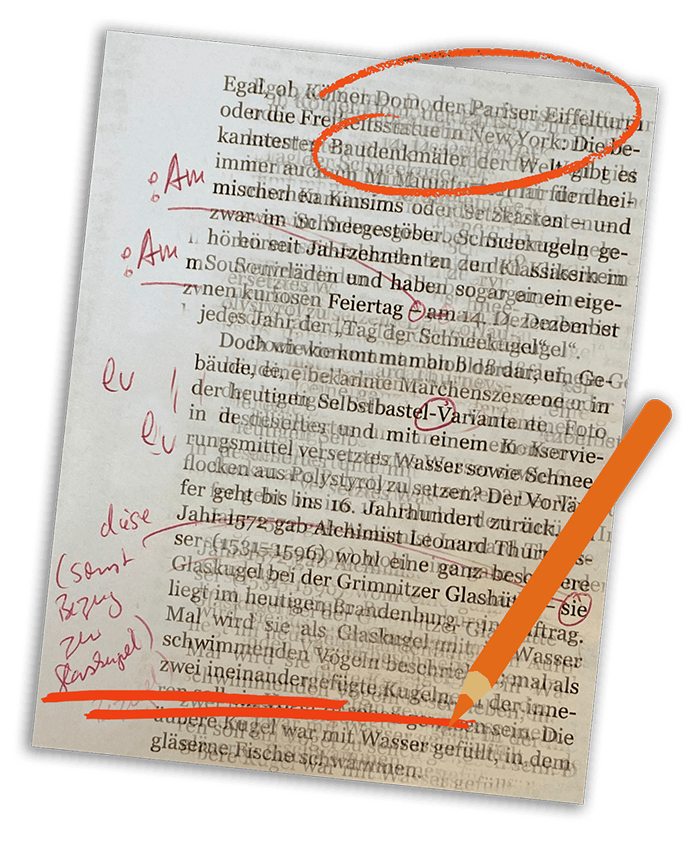 Egal, ob Kölner Dom, der Pariser Eiffelturm
oder die Freiheitsstatue in New York: Die be-
kanntesten Baudenkmäler der Welt gibt es
immer auch für den hei-
mischen Kaminsims oder Setzkasten – und
zwar im Schneegestöber. Schneekugeln ge-
hören seit Jahrzehnten zu den Klassikern in
Souvenirläden und haben sogar einen eige-
nen kuriosen Feiertag – am 14. Dezember ist
jedes Jahr der „Tag der Schneekugel“.
Doch wie kommt man bloß darauf, ein Ge-
bäude, eine bekannte Märchenszene oder in
der heutigen Selbstbastel-Variante Foto
in destilliertes und mit einem Konservie-
rungsmittel versetztes Wasser sowie Schnee-
flocken aus Polystyrol zu setzen? Der Vorläu-
fer geht bis ins 16. Jahrhundert zurück.
Jahr 1572 gab Alchimist Leonard Thurneys-
ser (1531–1596) wohl eine ganz besondere
Glaskugel bei der Grimnitzer Glashütte – sie
liegt im heutigen Brandenburg – in Auftrag.
Mal wird sie als Glaskugel mit Wasser
schwimmenden Vögeln beschrieben, mal als
zwei ineinandergefügte Kugeln, in der inne-
ren soll gewesen sein. Die
äußere Kugel war mit Wasser gefüllt, in dem
gläserne Fische schwammen.
Am
Am
diese
(sonst
Bezug
zur
Glaskugel)